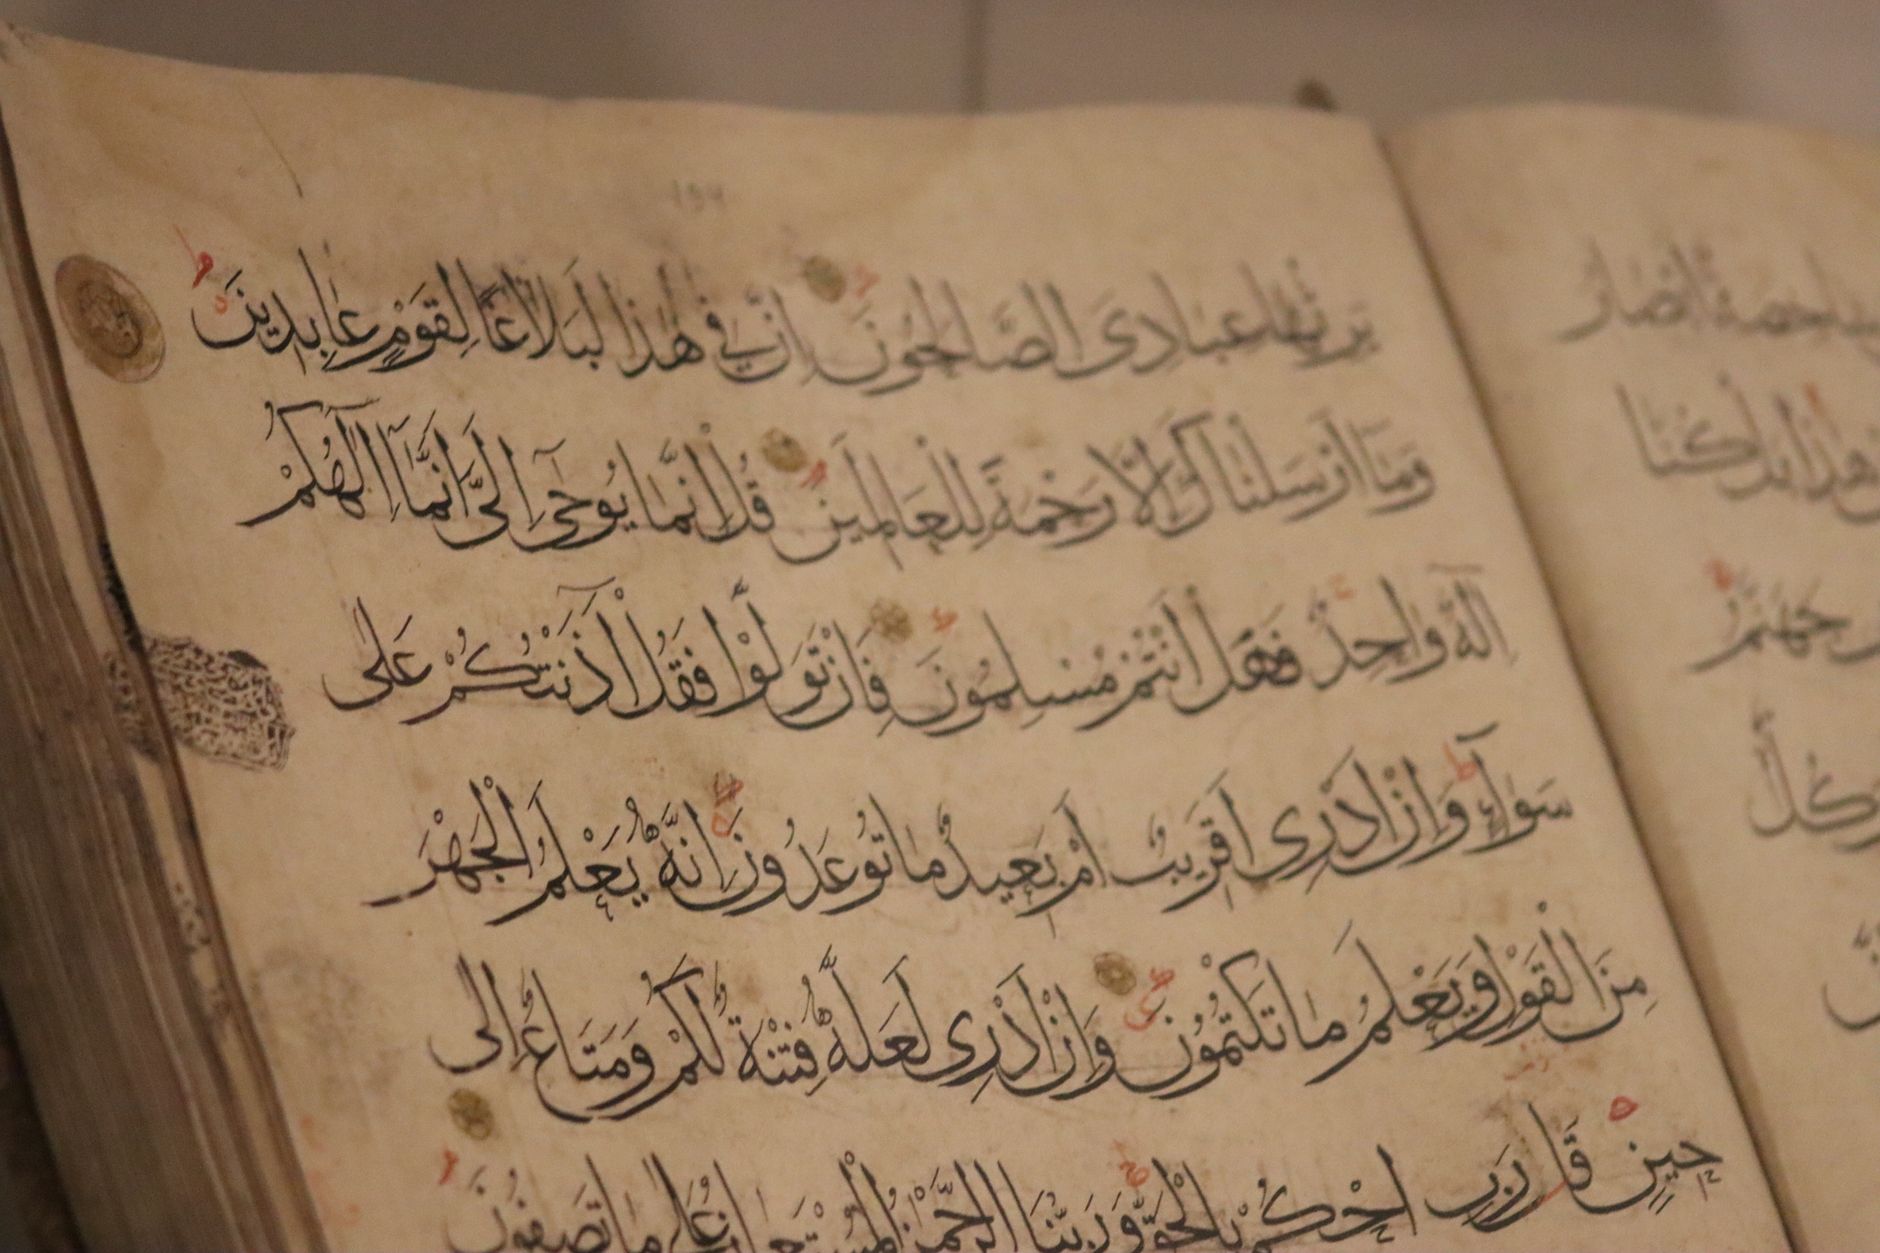 يَرِثُهَا عِبَادِىَ الصَّالِحُونَ اِنَّ فِى هٰذَا لَبَلَاغًا لِقَوْمٍ عَابِدِينَ
وَمَا اَرْسَلْنَاكَ اِلَّا رَحْمَةً لِلْعَالَمِينَ قُلْ اِنَّمَا يُوحَى اِلَىَّ اَنَّمَا اِلٰهُكُمْ
اِلٰهٌ وَاحِدٌ فَهَلْ اَنْتُمْ مُسْلِمُونَ فَاِنْ تَوَلَّوْا فَقُلْ اٰذَنْتُكُمْ عَلٰى
سَوَآءٍ وَاِنْ اَدْرِى اَقَرِيبٌ اَمْ بَعِيدٌ مَا تُوعَدُونَ اِنَّهُ يَعْلَمُ الْجَهْرَ
مِنَ الْقَوْلِ وَيَعْلَمُ مَا تَكْتُمُونَ وَاِنْ اَدْرِى لَعَلَّهُ فِتْنَةٌ لَكُمْ وَمَتَاعٌ اِلٰى
حِينٍ قَالَ رَبِّ احْكُمْ بِالْحَقِّ وَرَبُّنَا الرَّحْمٰنُ الْمُسْتَعَانُ عَلَى مَا تَصِفُونَ
جَهَنَّمَ
وَكُلٌّ